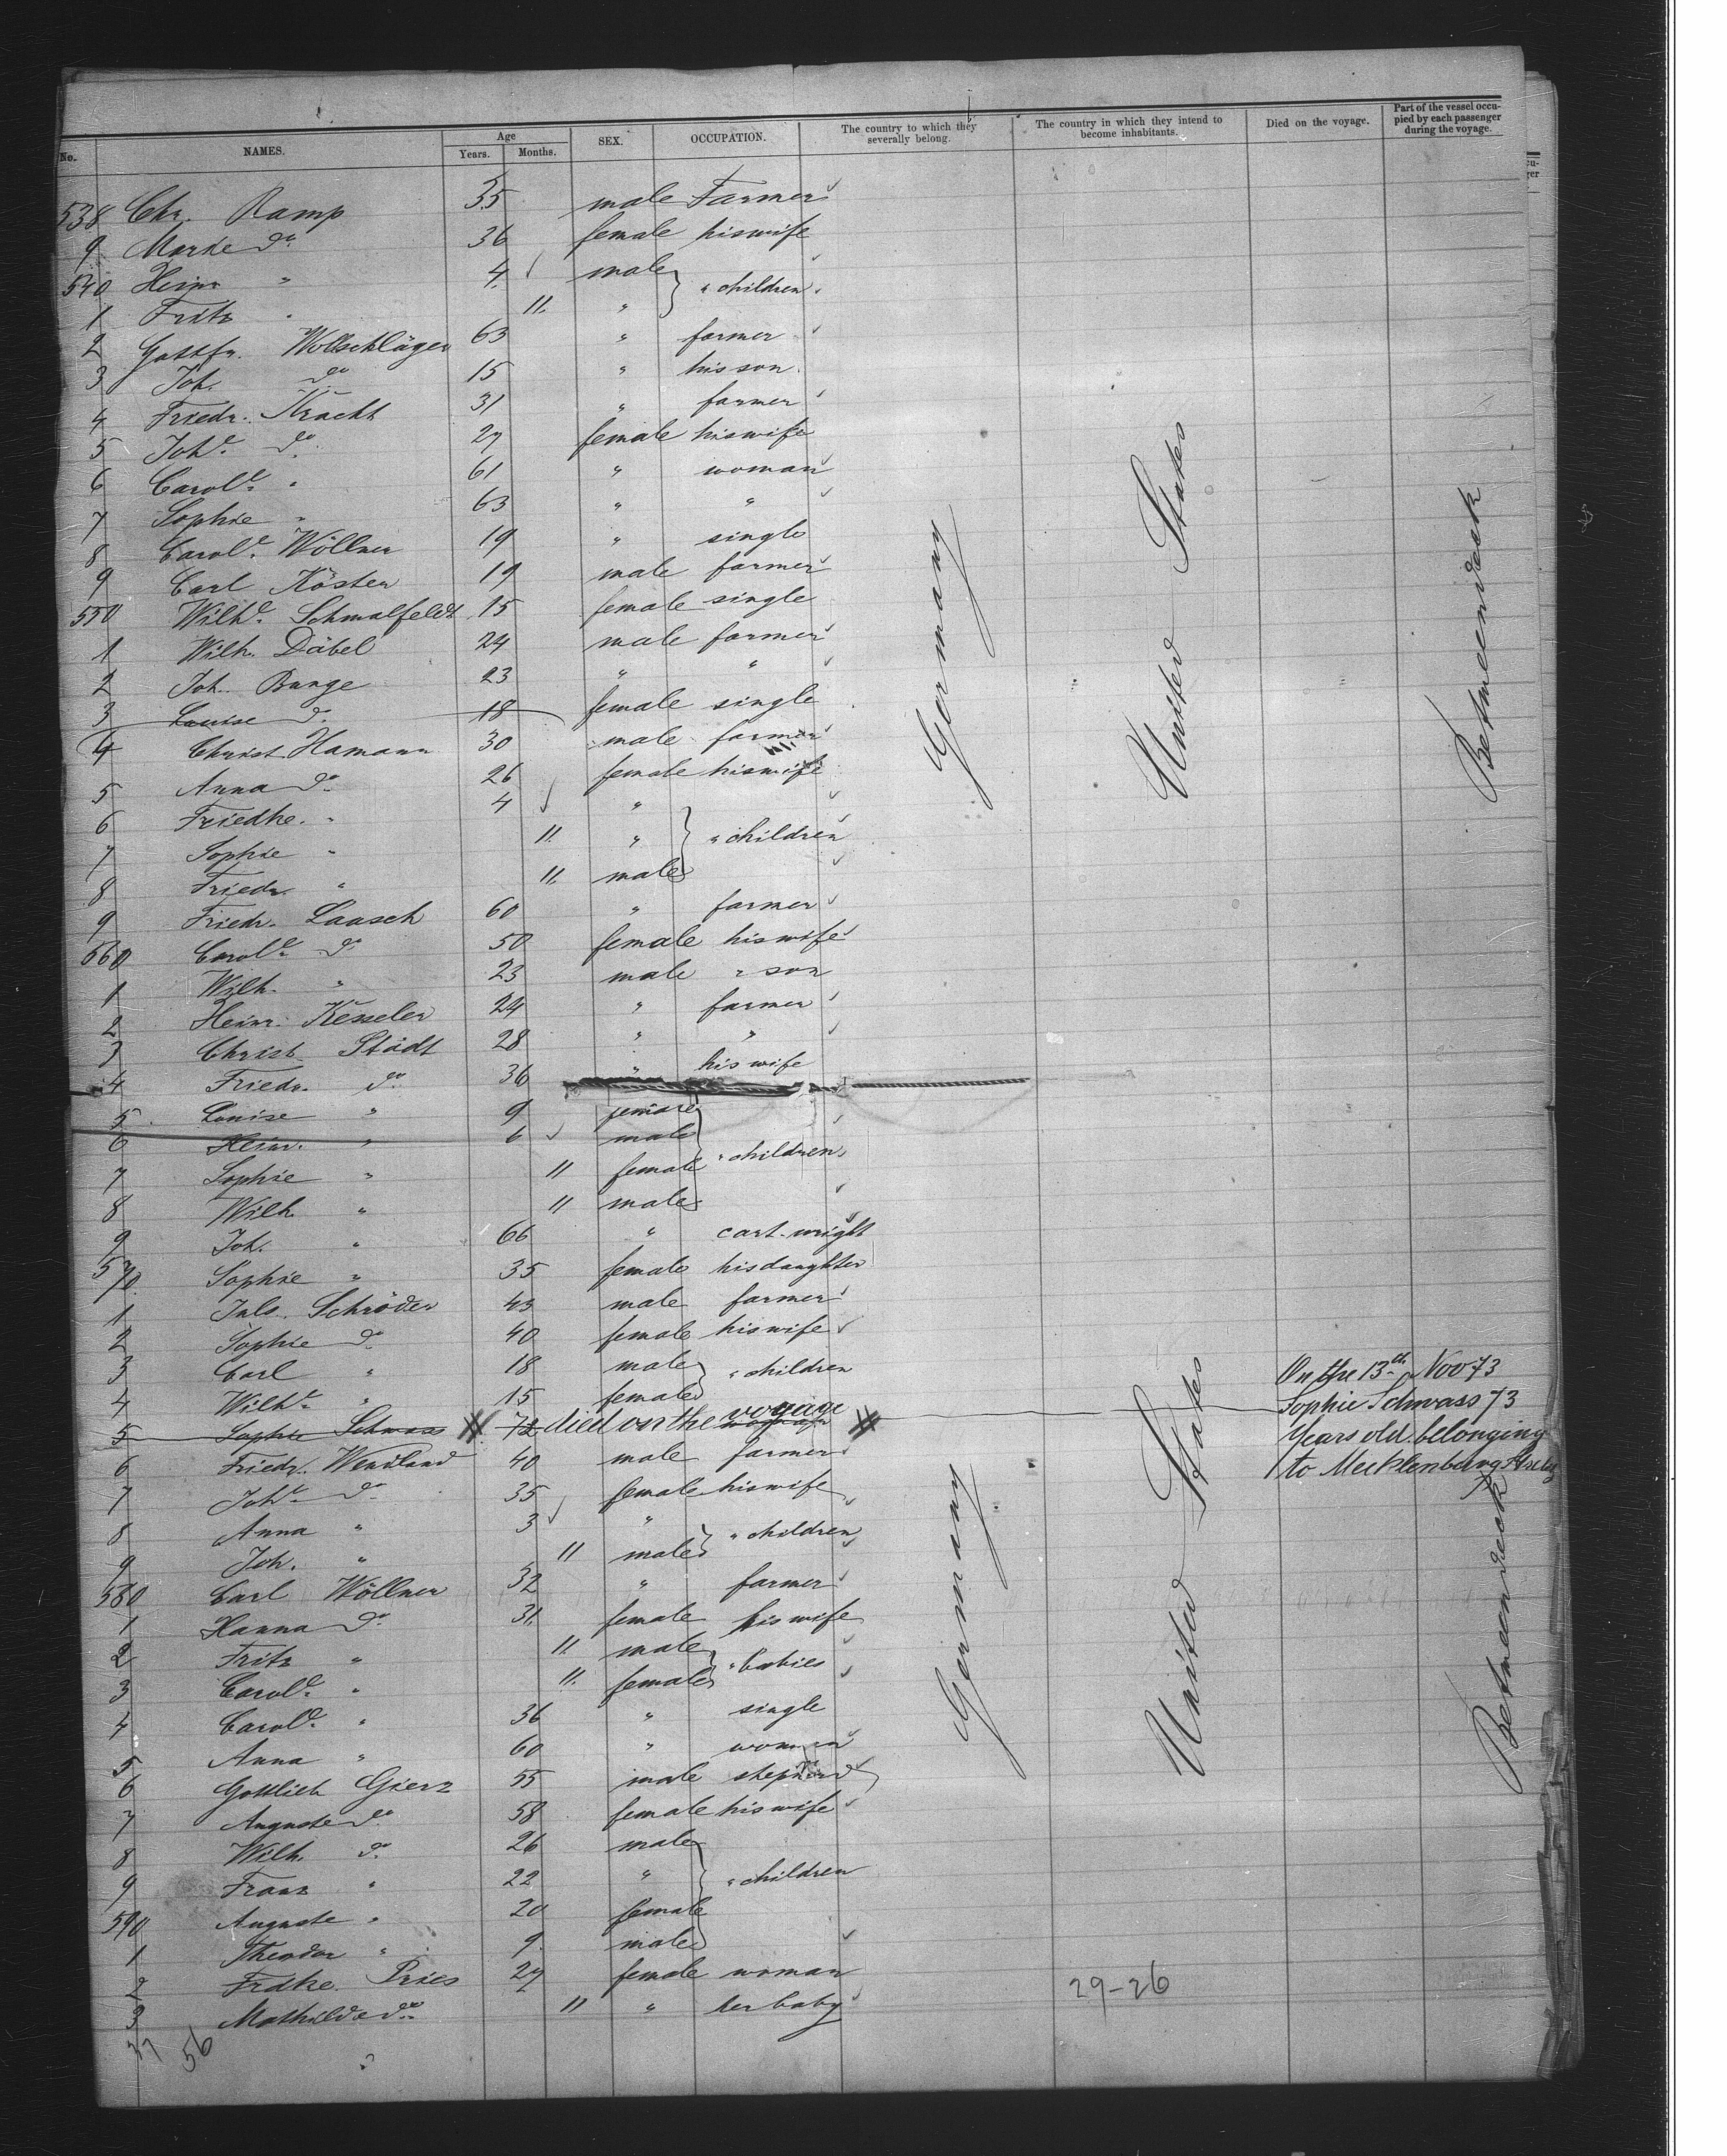 No. NAMES. Age Years. Months. SEX. OCCUPATION. The country to which they severally belong. The country in which they intend to become inhabitants. Died on the voyage. Part of the vessel occupied by each passenger during the voyage.
538 Chr. Ramp 35 male Farmer
9 Marie do 36 female his wife
540 Heinr " 4 male
1 Fritz " 11. " " children
2 Gottfr. Wollschläger 63 " farmer
3 Joh. do 15 " his son
4 Friedr. Kracht 31 " farmer
5 Johe do 27 female his wife
6 Carole " 61 " woman
7 Sophie " 63 " "
8 Carole Wöllner 19 " single
9 Carl Köster 19 male farmer
550 Wilhe Schmalfeldt 15 female single
1 Wilh. Däbel 24 male farmer
2 Joh. Bunge 23 " "
3 Louise do 18 female single
4 Christ Hamann 30 male farmer
5 Anna do 26 female his wife
6 Friedke. " 4 "
7 Sophie " 11. " " children
8 Friedr. " 11. male
9 Friedr. Laasch 60 " farmer
560 Carole do 50 female his wife
1 Wilh. " 23 male " son
2 Heinr. Kesseler 24 " farmer
3 Christ Städt 28 " "
4 Friedr. do 36 " his wife
5 Louise " 9 female
6 Heinr. " 6 male
7 Sophie " 11 female " children
8 Wilh " 11 male
9 Joh. " 66 " cart-wright
570 Sophie " 35 female his daughter
1 Juls. Schröder 43 male farmer
2 Sophie do 40 female his wife
3 Carl " 18 male " children
4 Wilhe " 15 female
5 Sophie Schwass 72 died on the voyage
On the 13th Nov 73
Sophie Schwass 73
Years old belonging
to Mecklenburg
6 Friedr. Wendland 40 male farmer
7 Johe do 35 female his wife
8 Anna " 3 " " children
9 Joh. " 11 male
580 Carl Wöllner 32 " farmer
1 Hanna do 31. female his wife
2 Fritz " 11. male
3 Carole " 11. female " babies
4 Carole " 36 " single
5 Anna " 60 " woman
6 Gottlieb Gierz 55 male shepherd
7 Auguste do 58 female his wife
8 Wilh. do 26 male
9 Franz " 22 " " children
590 Auguste " 20 female
1 Theodor " 9 male
2 Frdke. Pries 27 female woman
3 Mathilde do 11 " her baby
Germany
United States
Betweendeck
Germany
United States
Betweendeck
29-26
56